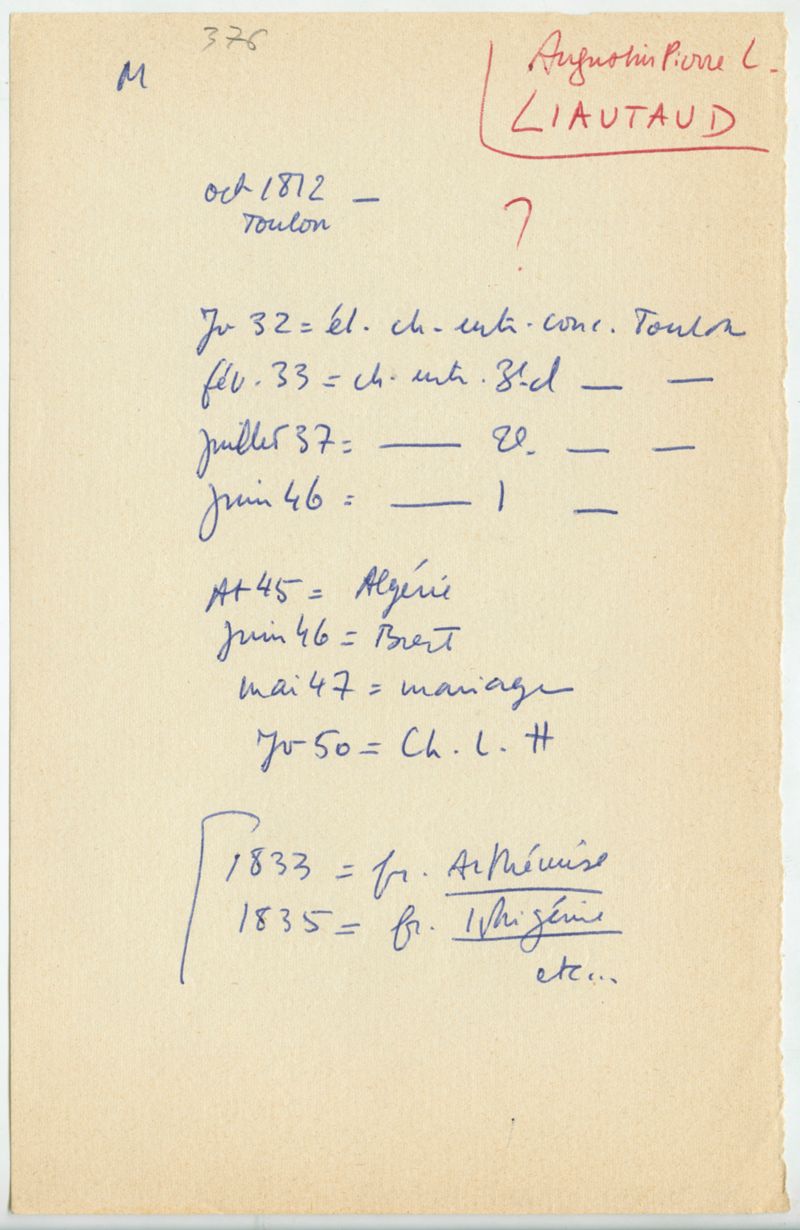 376
M
Augustin Pierre L.
LIAUTAUD
oct 1812 —
Toulon
?
Jv 32 = él. ch. entr. conc. Toulon
fév. 33 = ch. entr. 3e cl — —
Juillet 37 = — 2e. — —
Juin 46 = — 1 —
At 45 = Algérie
Juin 46 = Brest
mai 47 = mariage
Jv 50 = Ch. L. H
1833 = fr. Arthémise
1835 = fr. Iphigénie
etc...